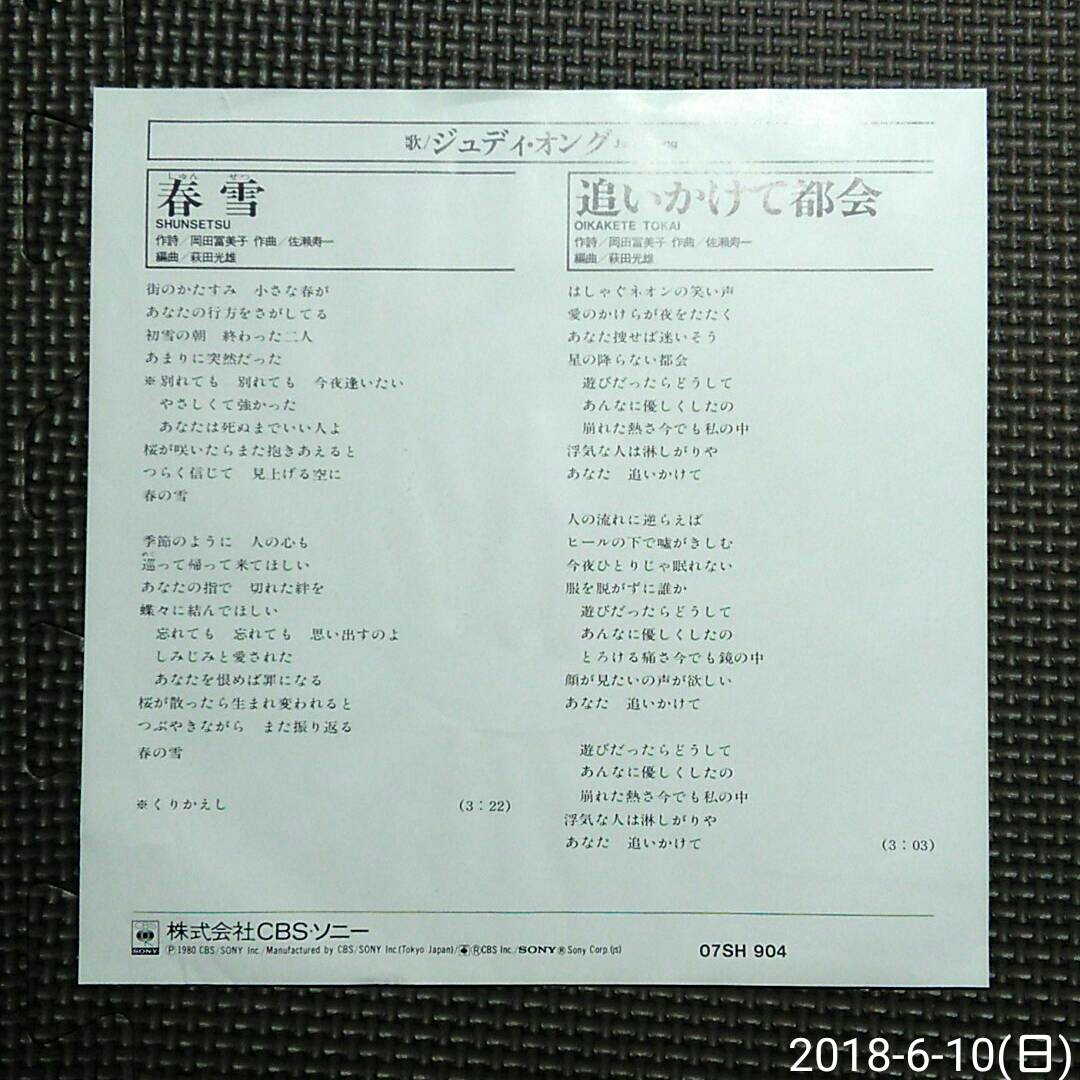 歌/ジュディ・オング
春雪
しゅん せつ
SHUNSETSU
作詩/岡田冨美子 作曲/佐瀬寿一
編曲/萩田光雄
街のかたすみ 小さな春が
あなたの行方をさがしてる
初雪の朝 終わった二人
あまりに突然だった
※別れても 別れても 今夜逢いたい
やさしくて強かった
あなたは死ぬまでいい人よ
桜が咲いたらまた抱きあえると
つらく信じて 見上げる空に
春の雪
季節のように 人の心も
巡って帰って来てほしい
あなたの指で 切れた絆を
蝶々に結んでほしい
忘れても 忘れても 思い出すのよ
しみじみと愛された
あなたを恨めば罪になる
桜が散ったら生まれ変われると
つぶやきながら また振り返る
春の雪
※くりかえし (3:22)
追いかけて都会
OIKAKETE TOKAI
作詩/岡田冨美子 作曲/佐瀬寿一
編曲/萩田光雄
はしゃぐネオンの笑い声
愛のかけらが夜をたたく
あなた捜せば迷いそう
星の降らない都会
遊びだったらどうして
あんなに優しくしたの
崩れた熱さ今でも私の中
浮気な人は淋しがりや
あなた 追いかけて
人の流れに逆らえば
ヒールの下で嘘がきしむ
今夜ひとりじゃ眠れない
服を脱がずに誰か
遊びだったらどうして
あんなに優しくしたの
とろける痛さ今でも鏡の中
顔が見たいの声が欲しい
あなた 追いかけて
遊びだったらどうして
あんなに優しくしたの
崩れた熱さ今でも私の中
浮気な人は淋しがりや
あなた 追いかけて (3:03)
CBS
SONY
株式会社CBS・ソニー
Ⓟ1980 CBS/SONY Inc./Manufactured by CBS/SONY Inc.(Tokyo Japan)/®CBS Inc./SONY® Sony Corp.(js)
07SH 904
2018-6-10(日)